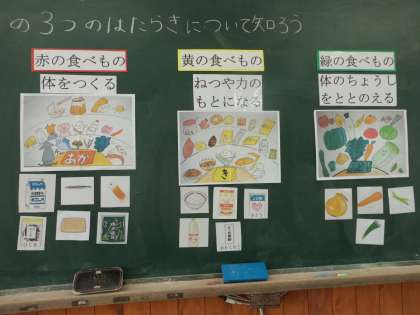 の3つのはたらきについて知ろう
赤の食べもの
体をつくる
あか
黄の食べもの
ねつや力の
もとになる
き
緑の食べもの
体のちょうし
をととのえる